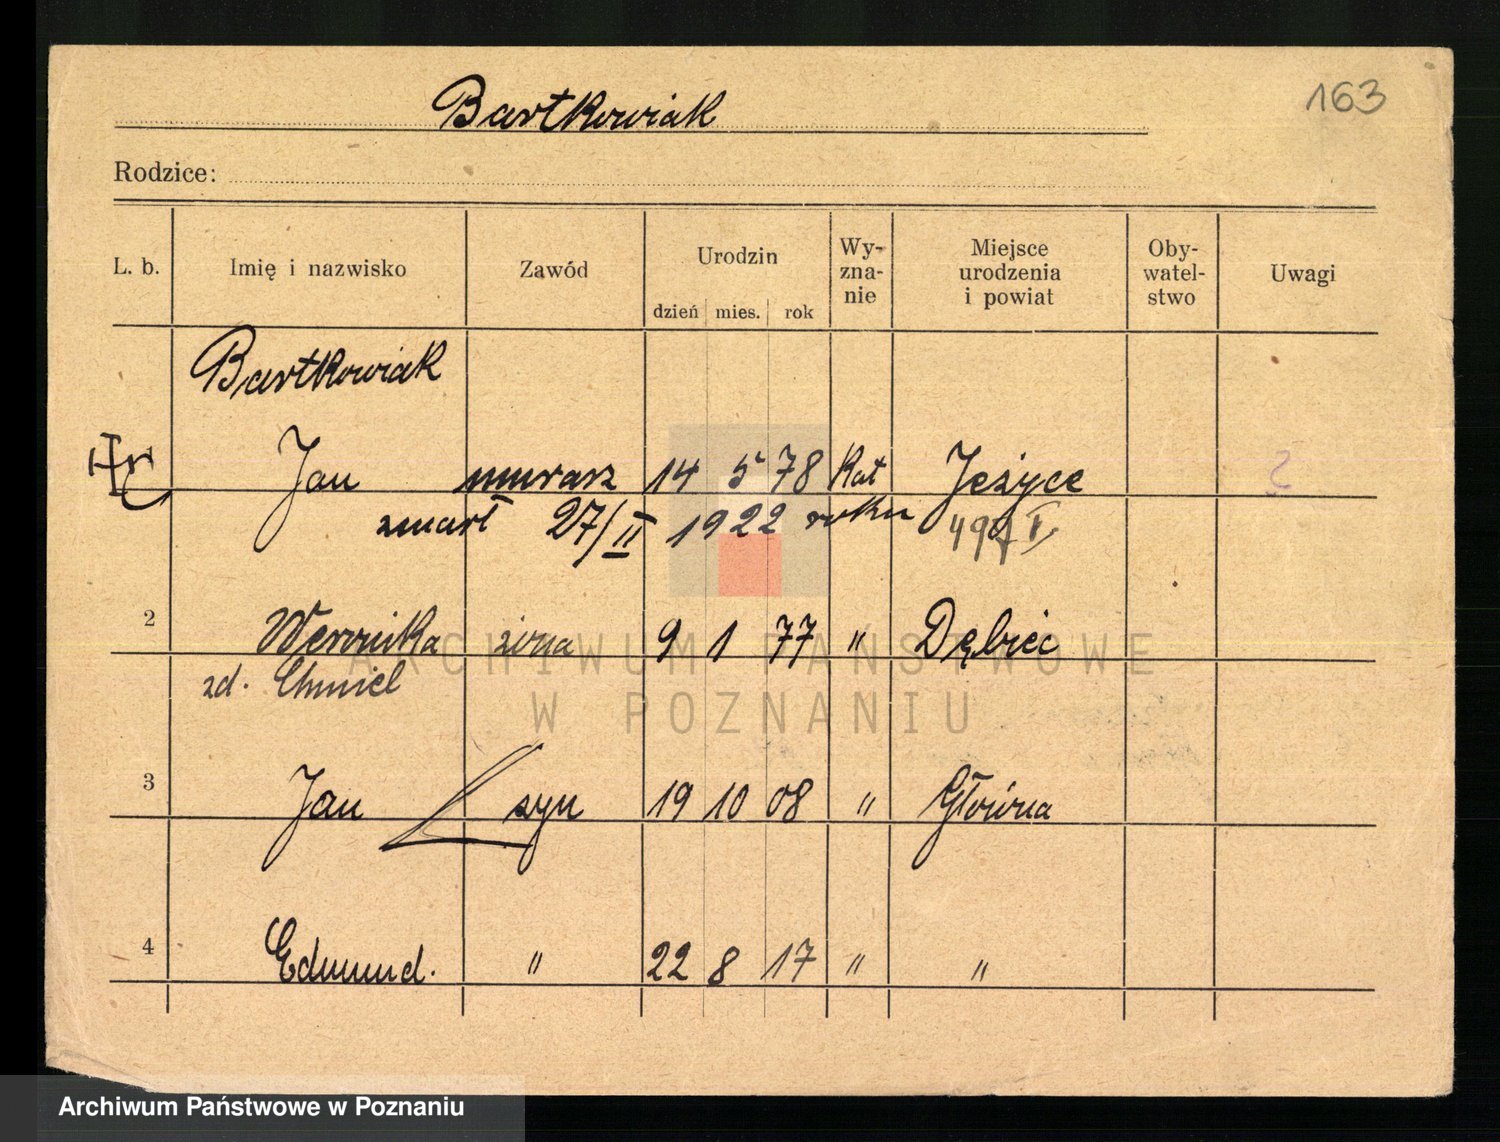 Bartkowiak
163
Rodzice:
L. b. Imię i nazwisko Zawód Urodzin dzień mies. rok Wy-zna-nie Miejsce urodzenia i powiat Oby-watel-stwo Uwagi
Bartkowiak
Jan murarz 14 5 78 Kat Jeżyce
zmarł 27/II 1922 roku
2 Weronika żona 9 1 77 " Dębiec
zd. Chmiel
3 Jan syn 19 10 08 " Główna
4 Edmund. " 22 8 17 " "
ARCHIWUM PAŃSTWOWE
W POZNANIU
Archiwum Państwowe w Poznaniu